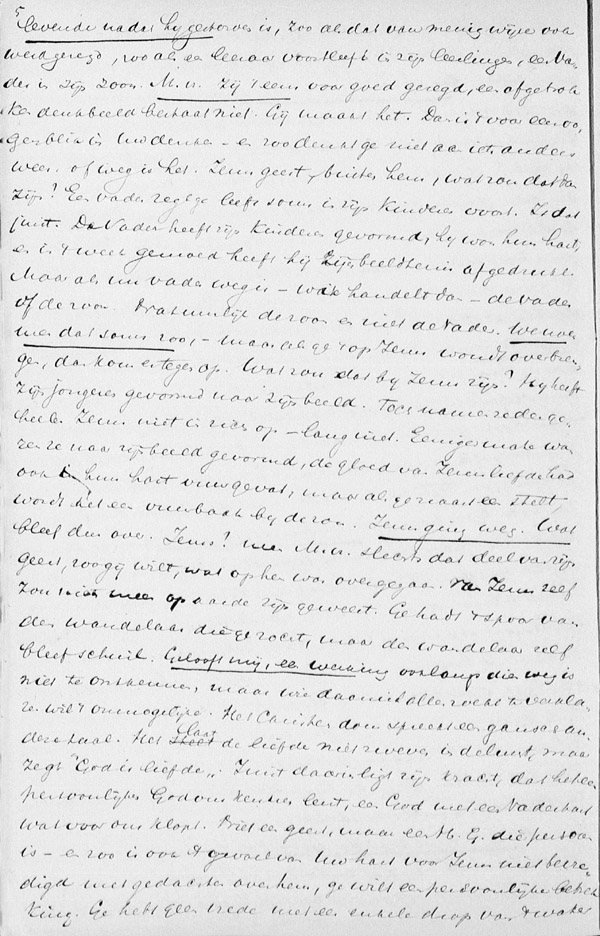 5
levende nadat hij gestorven is, zoo als dat van menig wijze ook
werd gezegd, zoo als een leeraar voortleeft in zijn leerlingen, een Va-
der in zijn zoon. M. v. Zij 't eens voor goed gezegd, een afgetrok
ken denkbeeld bestaat niet. Gij maakt het. Dan is 't voor een oo
genblik in Uw denken - en zoo denkt ge niet aan iets anders
weer of weg is het. Jezus geest, buiten hem, wat zou dat dan
zijn? Een vader zegt ge leeft soms in zijn kinderen voort. Is dat
juist. De Vader heeft zijn kinderen gevormd, hij won hun hart,
en in 't week gemoed heeft hij zijn beeldtenis afgedrukt.
Maar als nu vader weg is - wie handelt dan - de vader
of de zoon. Natuurlijk de zoon en niet de Vader. We noe
men dat soms zoo, - maar als ge 't op Jezus wondt overbren
gen, dan kom er tegen op. Wat zou dat bij Jezus zijn? Hij heeft
zijn jongeren gevormd naar zijn beeld. Toch namen ze den ge-
heelen Jezus niet in zich op - lang niet. Eenigermate wa
ren ze naar zijn beeld gevormd, de gloed van Jezus liefde had
ook in hun hart vuur gevat, maar als ge naast een stelt,
wordt het een vuurbaak bij de zon. Jezus ging weg. Wat
bleef dus over. Jezus? neen M. v. slechts dat deel van zijn
geest, zoo gij wilt, wat op hen was overgegaan. Van Jezus zelf
zou niets meer op aarde zijn geweest. Ge hadt 't spoor van
den wandelaar die ge zocht, maar de wandelaar zelf
bleef schuil. Gelooft mij, een werking ook langs dien weg is
niet te ontkennen, maar wie daaruit alles zoekt te verkla-
ren wil 't onmogelijke. Het Christendom spreekt een gansch an
dere taal. Het laat de liefde niet zweven in de lucht, maar
zegt "God is liefde". Juist daarin ligt zijn kracht, dat het een
persoonlijken God ons kennen leert, een God met een Vaderhart
wat voor ons klopt. Niet een geest, maar een H. G. die persoon
is - en zoo is ook 't gevoel van Uw hart voor Jezus niet bevre-
digd met gedachten over hem, ge wilt een persoonlijke betrek
king. Ge hebt geen vrede met een enkele drop van 't water